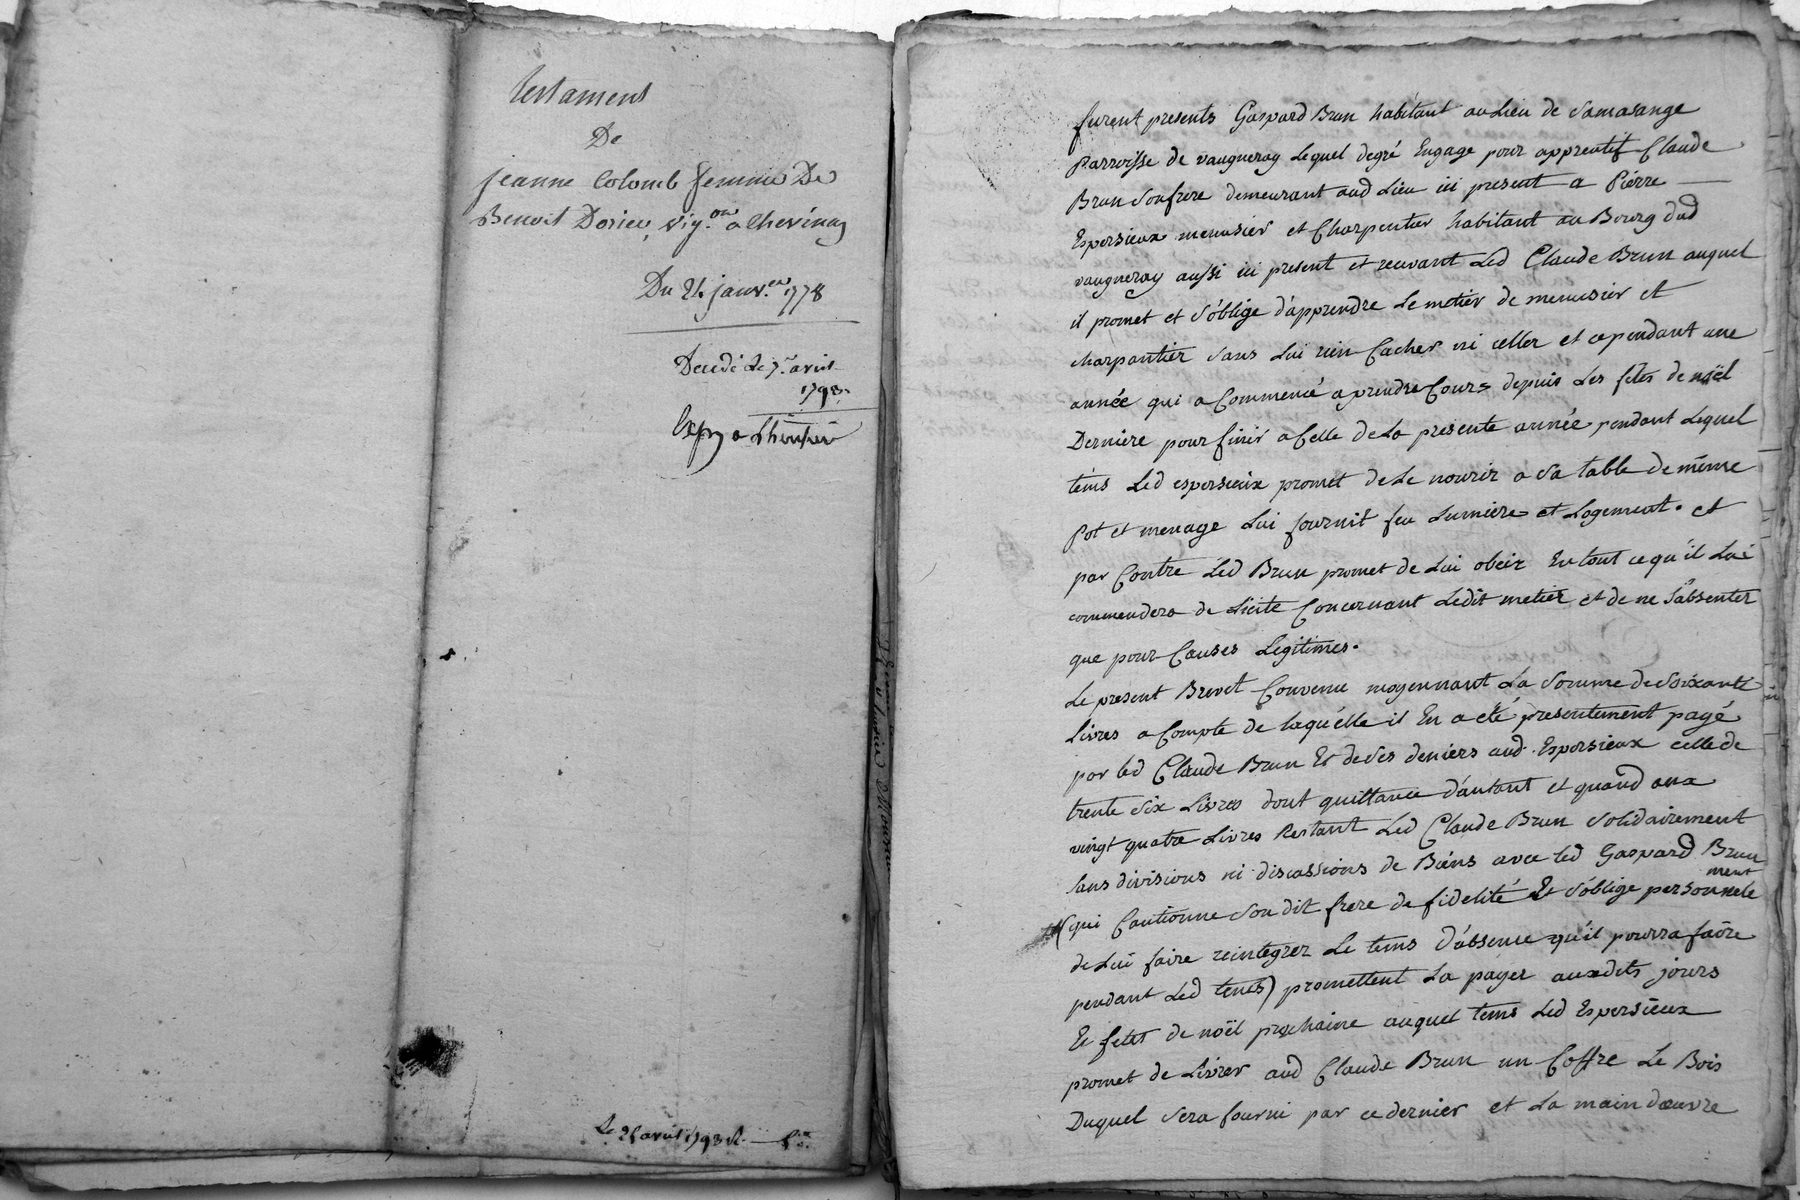 Testament
De
jeanne Colomb femme De
Benoit Dorieu, vig.on a Chevinay
Du 24 janv.er 1778
Decedé le 7.e avril
1793.
Le 21 avril 1793
furent presents Gaspard Brun habitant au Lieu de Samasange
Parroisse de vaugneray Lequel degré Engage pour apprentif Claude
Brun Son frere demeurant aud Lieu ici present a Pierre
Espersieux menusier et Charpentier habitant au Bourg dud
vaugneray aussi ici present et recevant Led Claude Brun auquel
il promet et s'óblige d'apprendre Le metier de menusier et
charpantier sans Lui rien Cacher ni celler et ce pendant une
année qui a Commencé a prendre Cours depuis Les fetes de noël
Derniere pour finir a Celle de La presente année, pendant Lequel
tems Led espersieux promet de Le nourir a Sa table de même
Pot et menage Lui fournit feu Lumiere et Logement. et
par Contre Led Brun promet de Lui obeir En tout ce qu'il Lui
commendera de Licite Concernant Ledit metier et de ne S'absenter
que pour Causes Legitimes.
Le present Brevet Convenu moyennant La Somme de Soixante
Livres a Compte de laquélle il En a eté presentement payé
par led Claude Brun Et de Ses deniers aud. Esporsieux celle de
trente Six Livres dont quittance d'autant et quand aux
vingt quatre Livres Restant Led Claude Brun Solidairement
sans divisions ni discussions de Biens avec led Gaspard Brun
(qui Cautionne Son dit frere de fidelité Et S'oblige personnele
ment
de Lui faire reintegrer Le tems d'absence qu'il pourra faire
pendant Led tems) promettent La payer auxdits jours
Et fetes de noël prochaine auquel tems Led Espersieux
promet de Livrer aud Claude Brun un Coffre Le Bois
Duquel Sera fourni par ce dernier et La main dœuvre